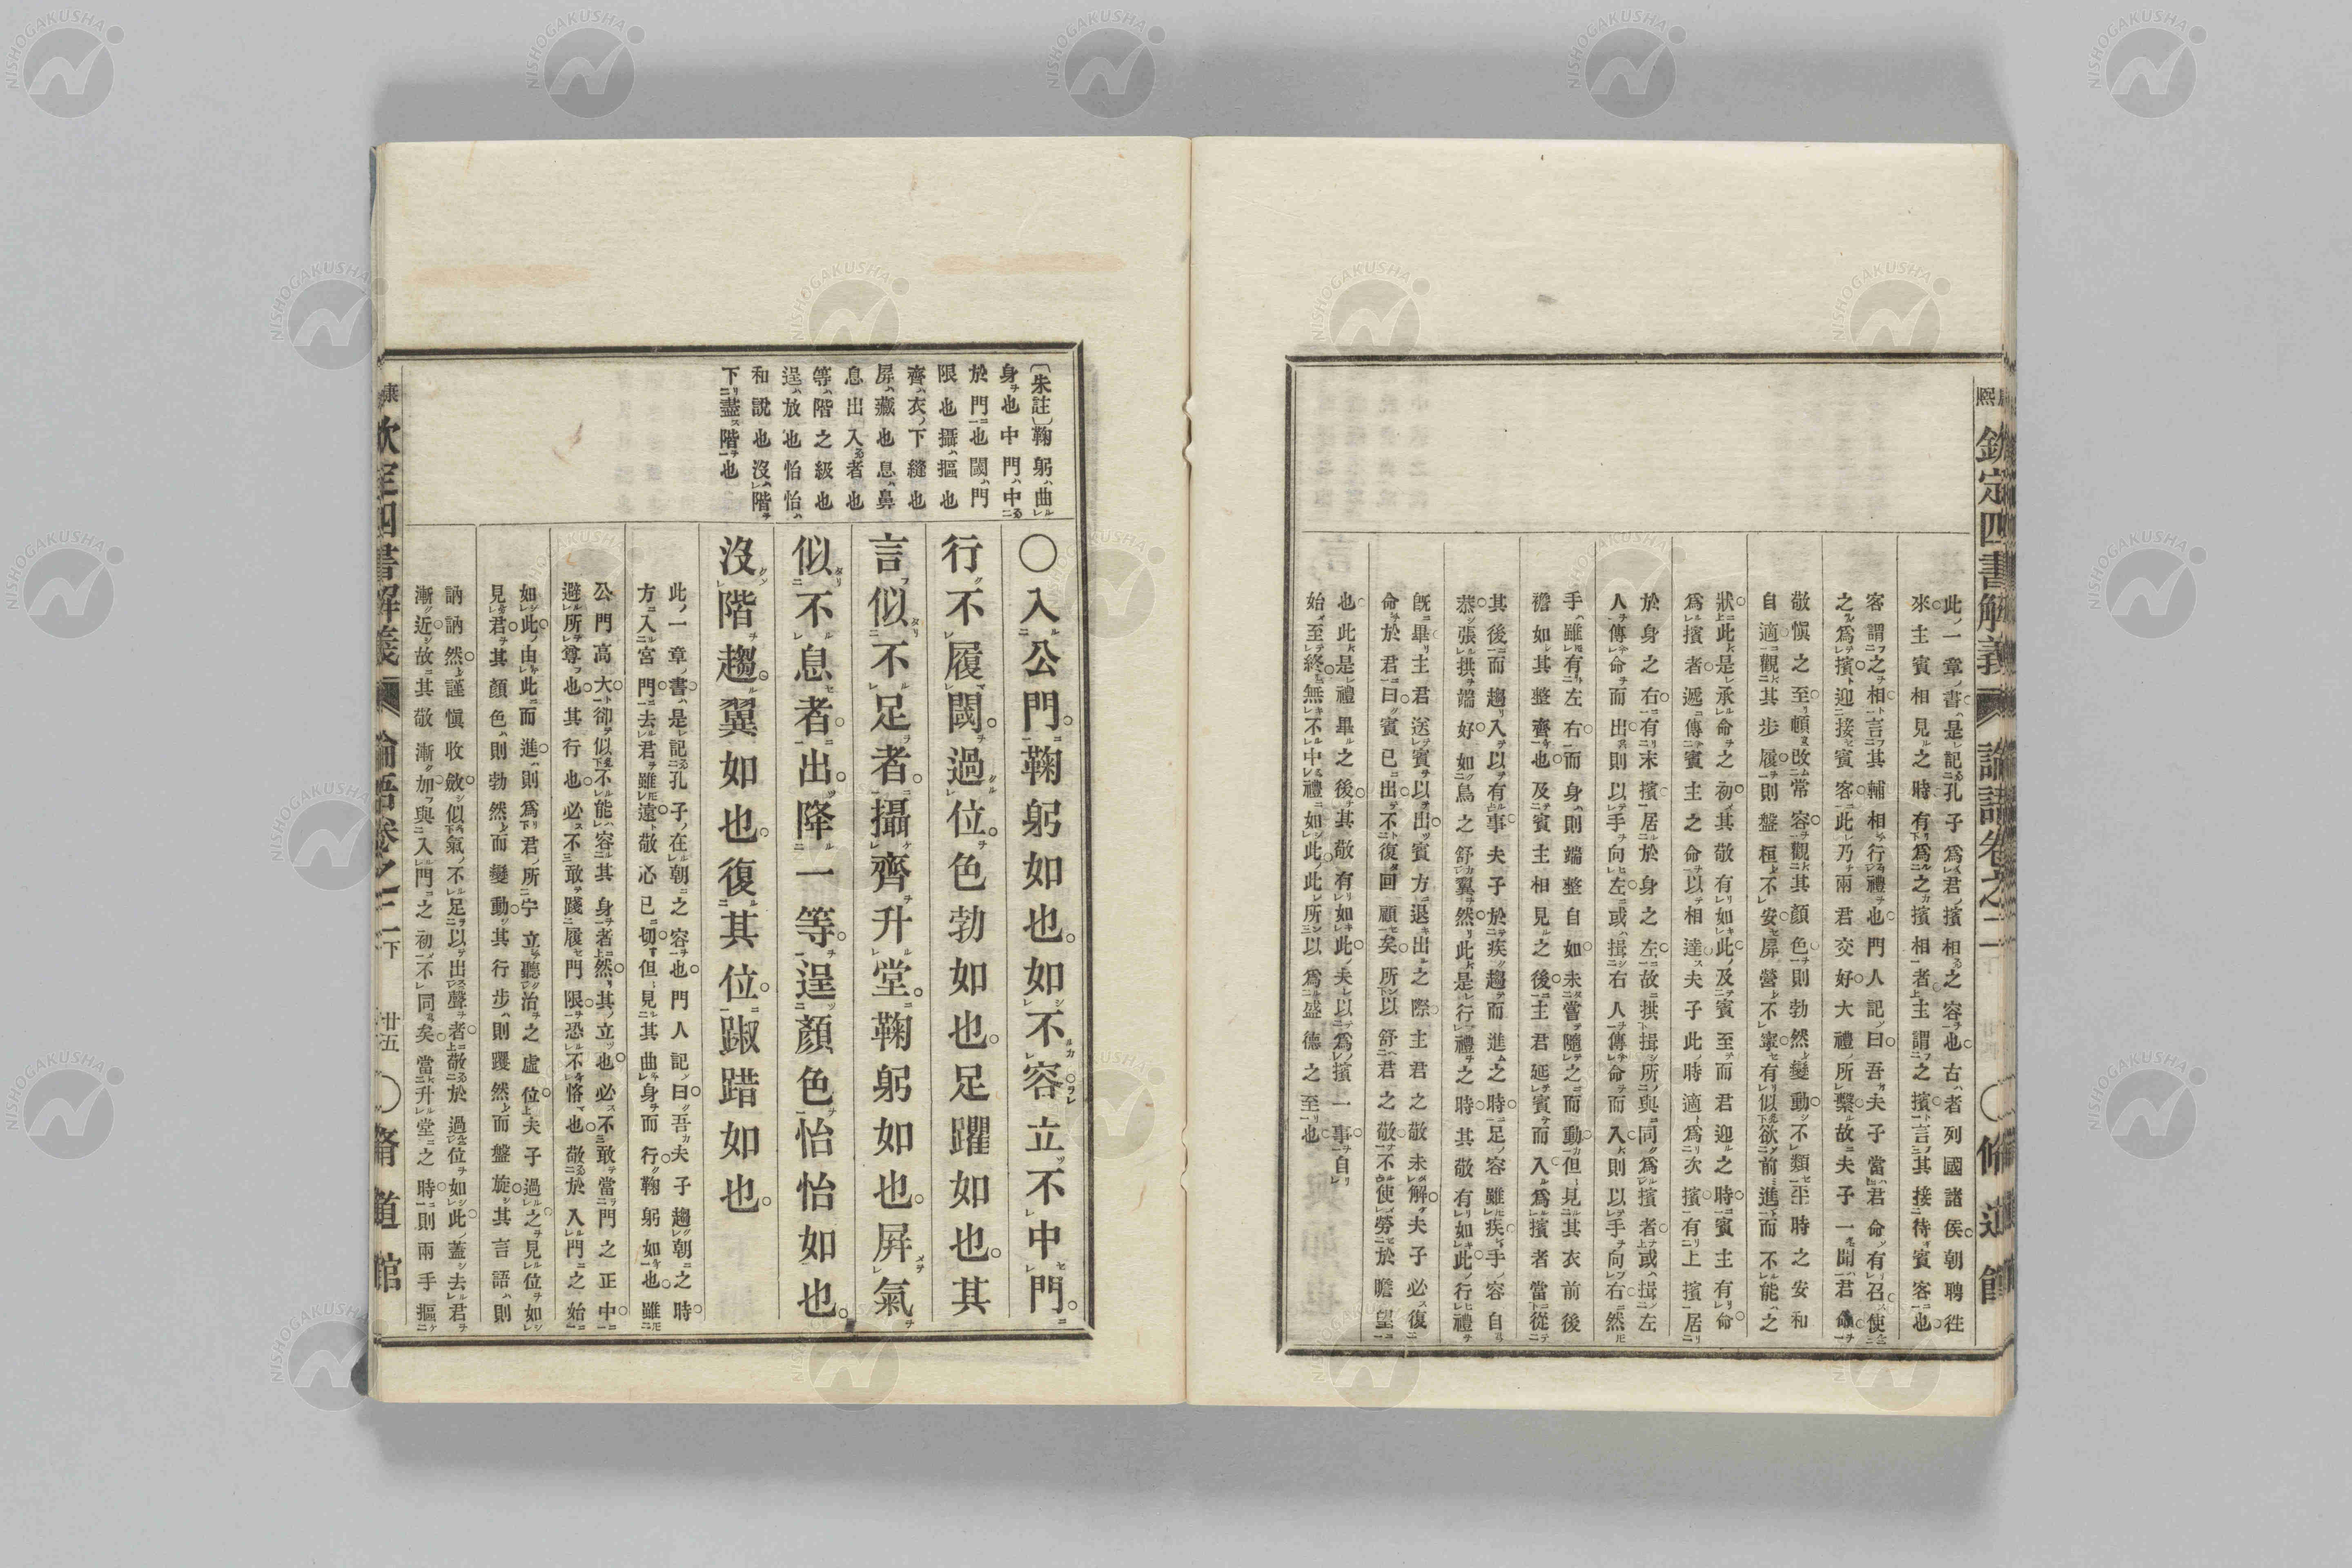 熙 欽定四書解義 論語卷之二 ○脩道館
此一章書是記孔子爲君擯相之容也古者列國諸侯朝聘徃
來主賓相見之時有爲之擯相者主謂之擯言其接待賓客也
客謂之相言其輔相行禮也門人記曰吾夫子當君命有召使
之爲擯迎接賓客此乃兩君交好大禮所繫故夫子一聞君命
敬愼之至頓改常容觀其顏色則勃然變動不類平時之安和
自適觀其步履則盤桓不安屏營不寧有似欲前進而不能之
狀此是承命之初其敬有如此及賓至而君迎之時賓主有命
爲擯者遞傳賓主之命以相達夫子此時適爲次擯有上擯居
於身之右有末擯居於身之左故拱揖所與同爲擯者或揖左
人傳命而出則以手向左或揖右人傳命而入則以手向右然
手雖有左右而身則端整自如未嘗隨之而動但見其衣前後
襜如其整齊也及賓主相見之後主君延賓而入爲擯者當從
其後而趨入以有事夫子於疾趨而進之時足容雖疾手容自
恭張拱端好如鳥之舒翼然此是行禮之時其敬有如此行禮
旣畢主君送賓以出賓方退出之際主君之敬未解夫子必復
命於君曰賓已出不復回顧矣所以舒君之敬不使勞於瞻望
也此是禮畢之後其敬有如此夫以爲擯一事自
始至終無不中禮如此此所以爲盛德之至也
〔朱註〕鞠躬曲
身也中門中
於門也閾門
限也攝摳也
齊衣下縫也
屏藏也息鼻
息出入者也
等階之級也
逞放也怡怡
和說也沒階
下盡階也
○入公門鞠躬如也如不容立不中門
行不履閾過位色勃如也足躩如也其
言似不足者攝齊升堂鞠躬如也屛氣
似不息者出降一等逞顏色怡怡如也
沒階趨翼如也復其位踧踖如也
此一章書是記孔子在朝之容也門人記曰吾夫子趨朝之時
方入宮門去君雖遠敬心已切但見其曲身而行鞠躬如也雖
公門高大卻似不能容其身者然其立也必不敢當門之正中
避所尊也其行也必不敢踐履門限恐不恪也敬於入門之始
如此由此而進則爲君所宁立聽治之虛位夫子過之見位如
見君其顏色則勃然而變動其行步則躩然而盤旋其言語則
訥訥然謹愼收斂似氣不足以出聲者敬於過位如此蓋去君
漸近故其敬漸加與入門之初不同矣當升堂之時則兩手摳
康 欽定四書解義 論語卷之二下 廿五 ○脩道館